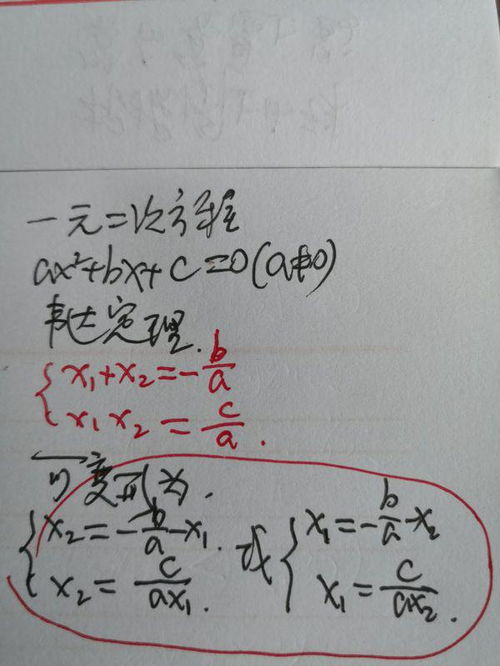 一元二次方程
ax²+bx+c=0(a≠0)
韦达定理.
{x₁+x₂=-b/a
x₁x₂=c/a.
可变形为.
{x₂=-b/a-x₁. 或 {x₁=-b/a-x₂
x₂=c/ax₁. x₁=c/ax₂.